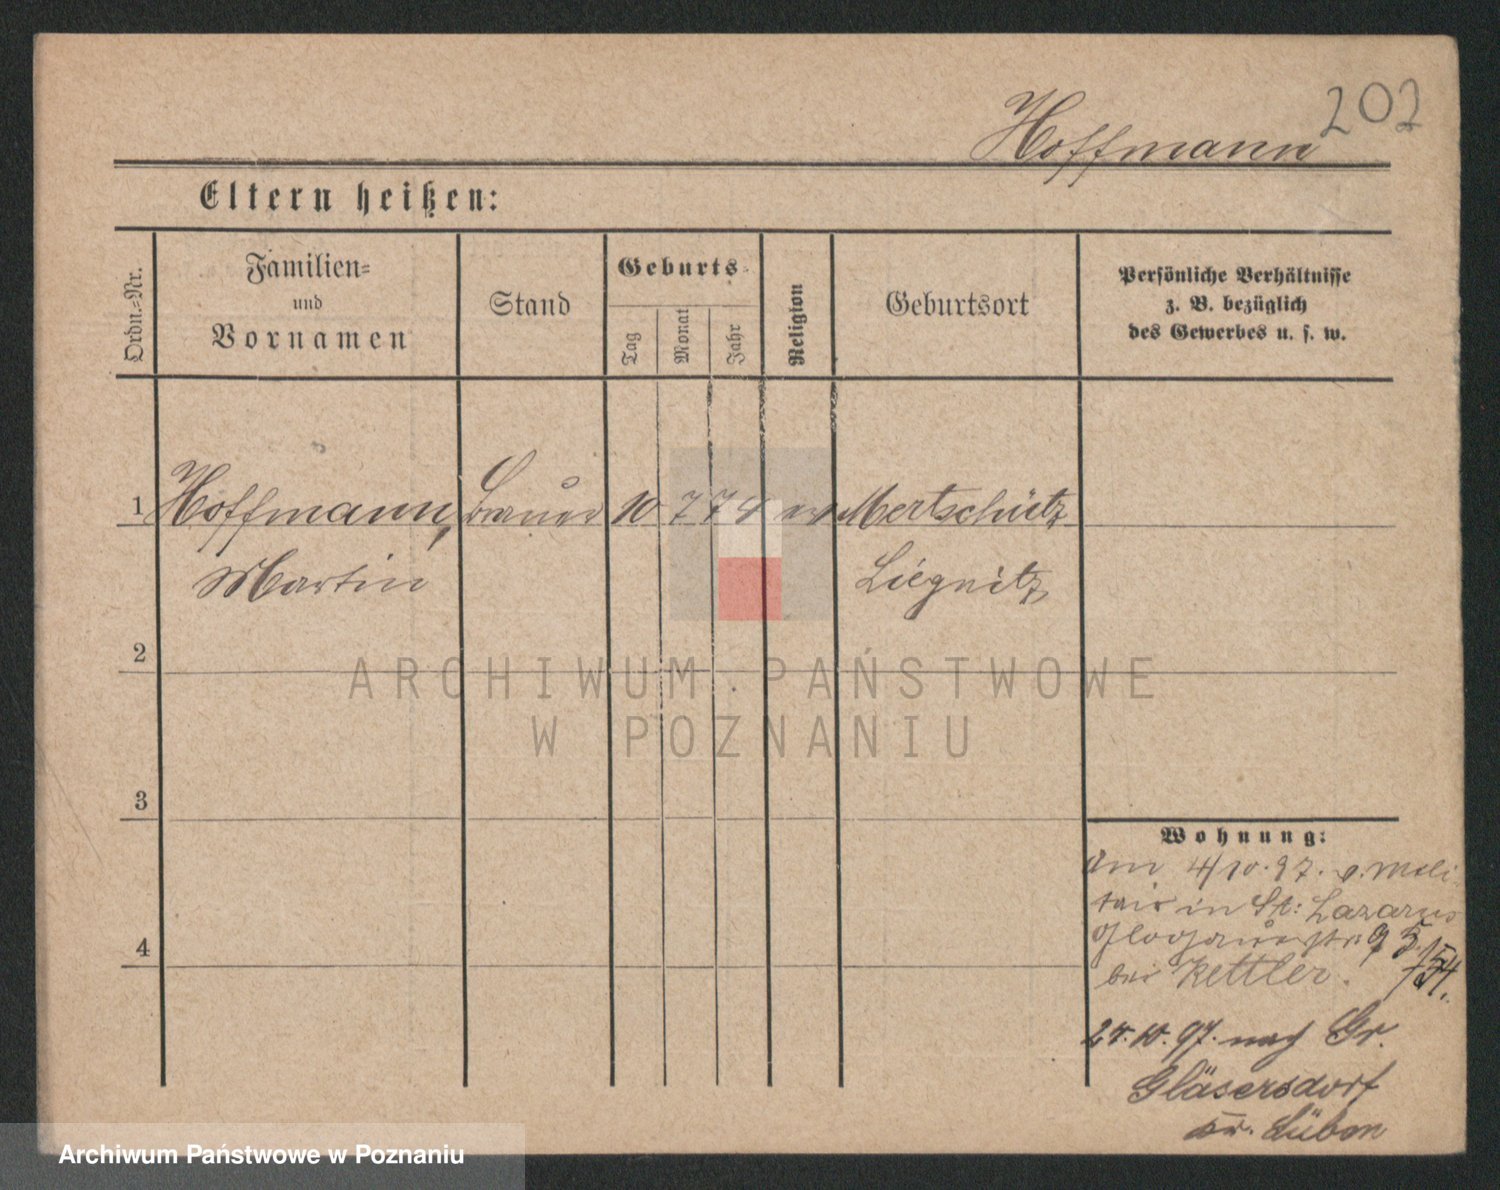 Hoffmann 202
Eltern heißen:
Ordn.-Nr.
Familien-
und
Vornamen
Stand
Geburts-
Tag
Monat
Jahr
Religion
Geburtsort
Persönliche Verhältnisse
z. B. bezüglich
des Gewerbes u. s. w.
1 Hoffmann, Brauer 10 7 74 ev Mertschütz
Martin Liegnitz
2
3
4
Wohnung:
Am 4/10.97. v. Mili-
tair in St: Lazarus
Glogauerstr: 95
bei Kettler. 154.
10.97. nach Gr.
Gläsersdorf
Kr. Lüben
ARCHIWUM PAŃSTWOWE
W POZNANIU
Archiwum Państwowe w Poznaniu